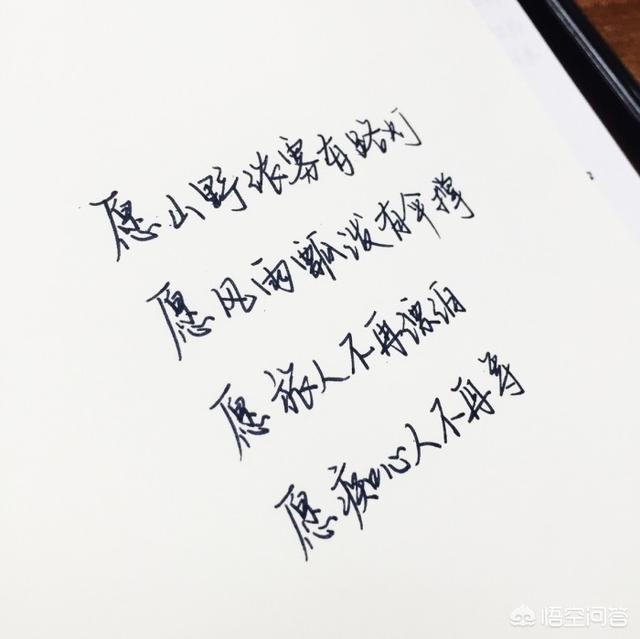 愿山野浓雾有路灯
愿风雨瓢泼有伞撑
愿旅人不再漂泊
愿痴心人不再等
悟空问答